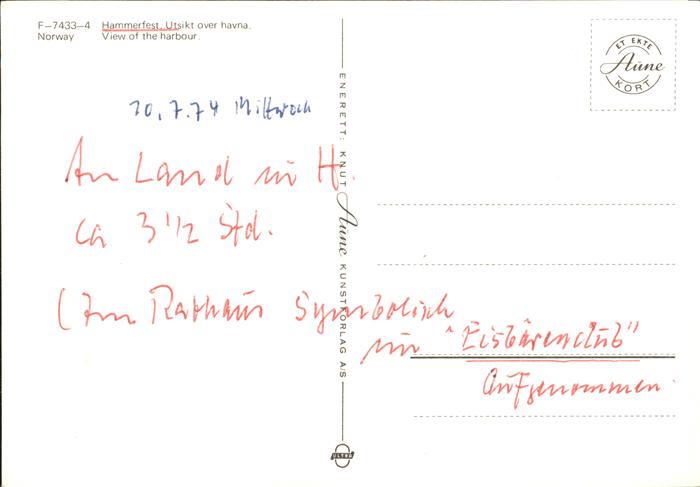 F-7433-4 Hammerfest. Utsikt over havna.
Norway View of the harbour.
ET EKTE
Aune
KORT
ENERETT: KNUT Aune KUNSTFORLAG A/S
10.7.74 Mittwoch
An Land in H.
ca 3 1/2 Std.
(Im Rathaus Symbolisch
im "Eisbärenclub"
Aufgenommen
ULTRA